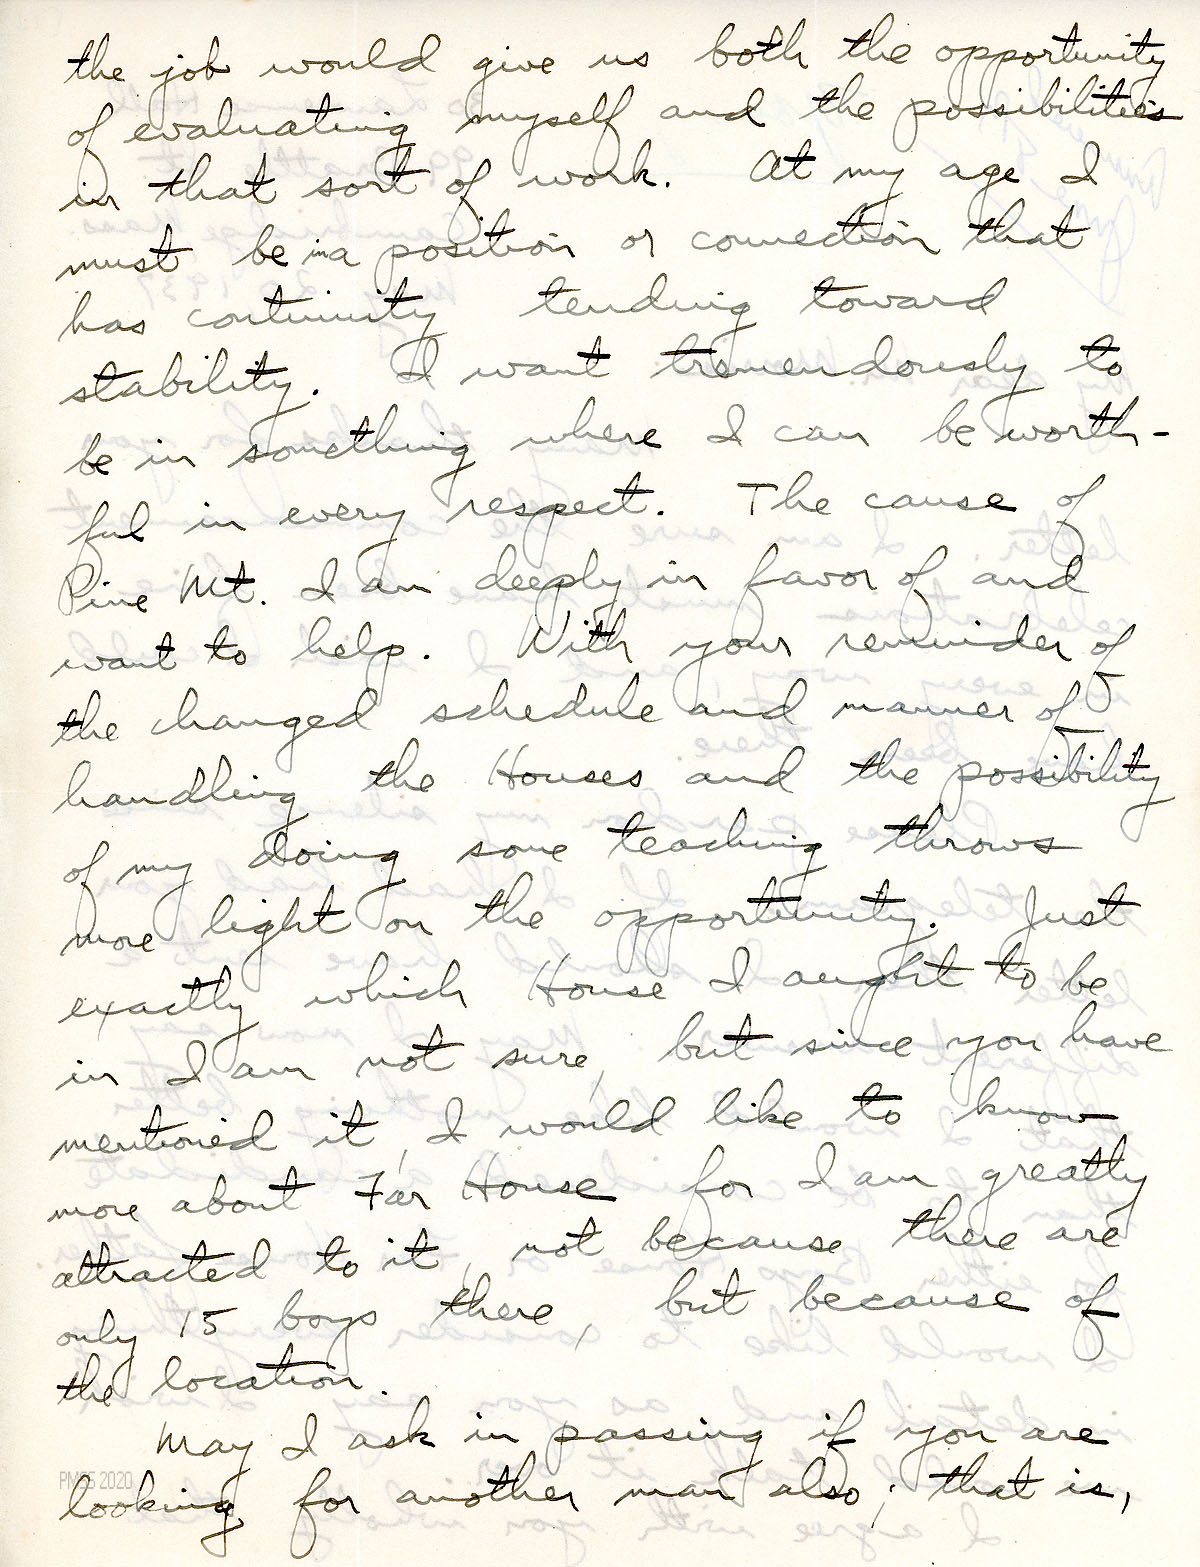 the job would give us both the opportunity
of evaluating myself and the possibilities
in that sort of work. At my age I
must be in a position or connection that
has continuity tending toward
stability. I want tremendously to
be in something where I can be worth-
ful in every respect. The cause of
Pine Mt. I am deeply in favor of and
want to help. With your reminder of
the changed schedule and manner of
handling the Houses and the possibility
of my doing some teaching throws
more light on the opportunity. Just
exactly which House I aught to be
in I am not sure, but since you have
mentioned it, I would like to know
more about Far House for I am greatly
attracted to it, not because there are
only 15 boys there, but because of
the location.
May I ask in passing if you are
looking for another man also; that is,
PMSS 2020